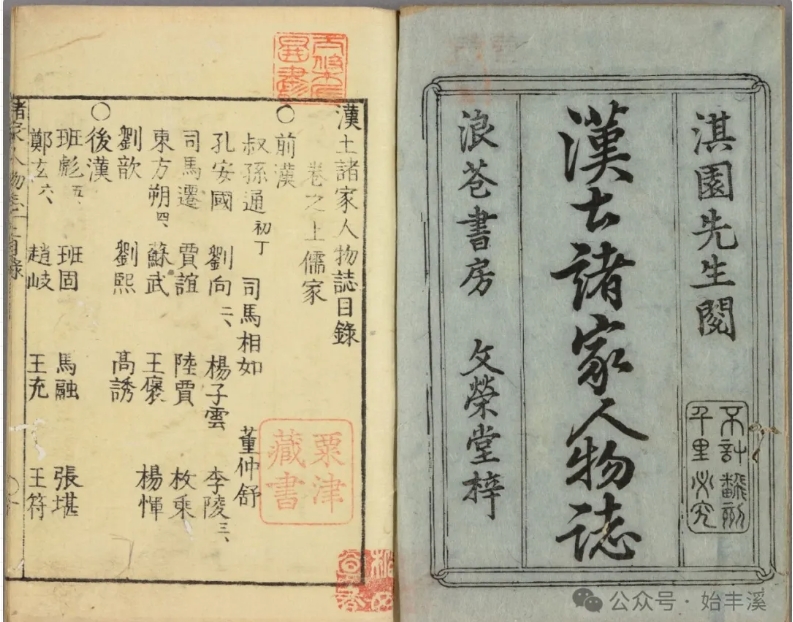 淇園先生閱
漢土諸家人物誌
浪華書房 文榮堂梓
不許翻刻
千里必究
漢土諸家人物誌目錄
卷之上儒家
○前漢
叔孫通初丁 司馬相如 董仲舒
孔安國 劉向二、 楊子雲 李陵三、
司馬遷 賈誼 陸賈 枚乘
東方朔四、 蘇武 王褒 楊惲
劉歆 劉熙 高誘
○後漢
班彪五、 班固 馬融 張堪
鄭玄六、 趙岐 王充 王符
諸家人物誌上目錄
粟津
藏書
公众号·始丰溪